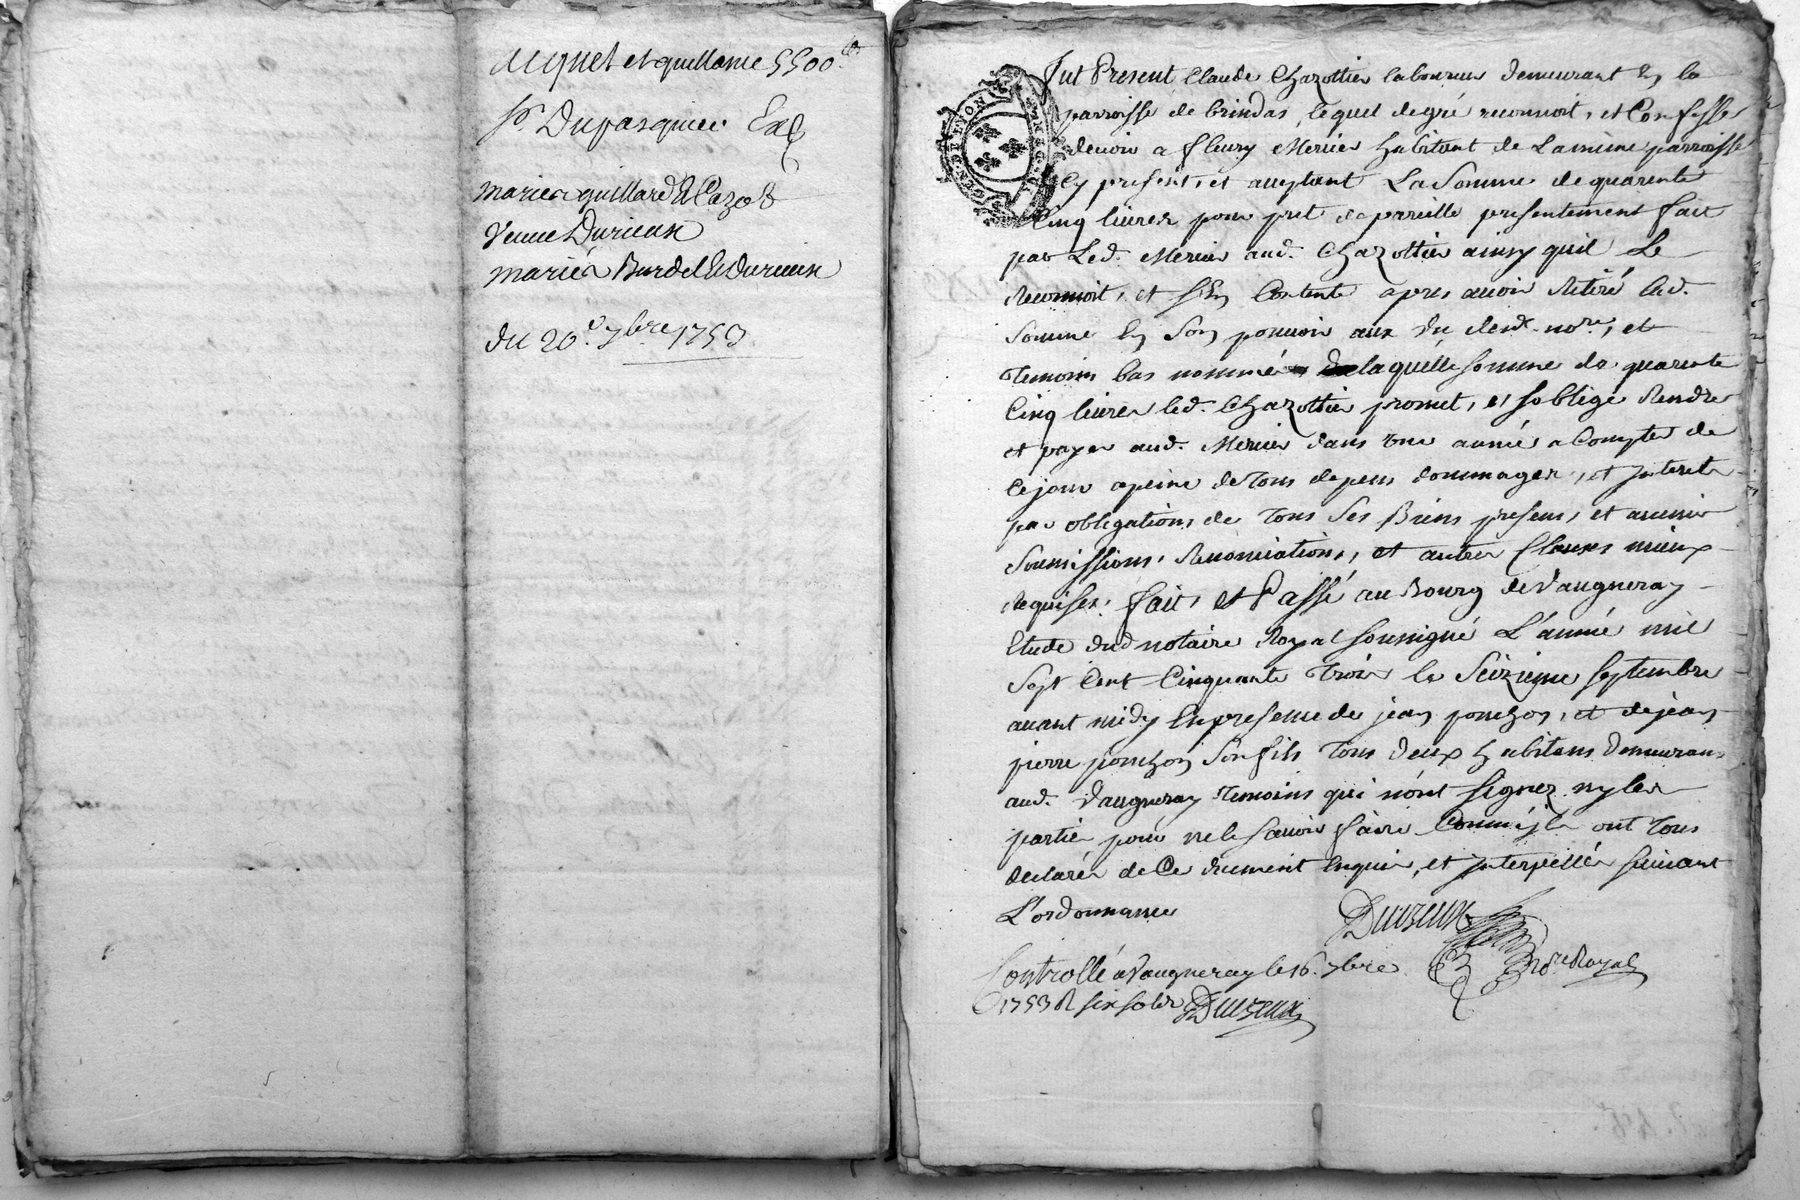 acquet et quittance 5500ᵗᵗ
Sʳ Dupasquier Exp
mariés guillard & Cazot
Veuve Durieux
mariés Burdel & Durieux
du 20ᵉ 7bre 1753
fut Present Claude Chazottier laboureur demeurant En la
parroisse de brindas, lequel degré reconnoit, et Confesse
devoir a fleury Mercier habitant de Lamême parroisse
Cy present, et acceptant La Somme de quarente
Cinq livres pour pret de pareille presentement fait
par Led. Mercier aud. Chazottier ainsy quil Le
Reconnoit, et s'En Contente apres avoir Retiré lad.
Somme En Son pouvoir aux vu desd. noʳᵉ, et
Temoins bas nommés laquelle somme de quarente
Cinq livres led. Chazottier promet, et s'oblige Rendre
et payer aud. Mercier dans une année a Compter de
Cejour apeine detous depens dommages, et Interets
par obligations de tous Ses Biens presens, et avenir
Soumissions, Renonciations, et autres Clauses mieux
Requises, fait, et Passé au Bourg de Vaugneray
Etude dud notaire Royal soussigné L'année mil
Sept Cent Cinquante trois le Seizieme septembre
avant midy Enpresence de jean ponchon, et dejean
pierre ponchon Son fils tous deux habitans demeurans
aud. Vaugneray temoins qui n'ont signez ny les
parties pour ne le sçavoir faire Comme ils ont tous
declarés de Ce duement Enquis, et Interpellés suivant
L'ordonnance
Durieux
noʳᵉ Royal
Controllé a Vaugneray le 16. 7bre
1753 R six sols Durieux